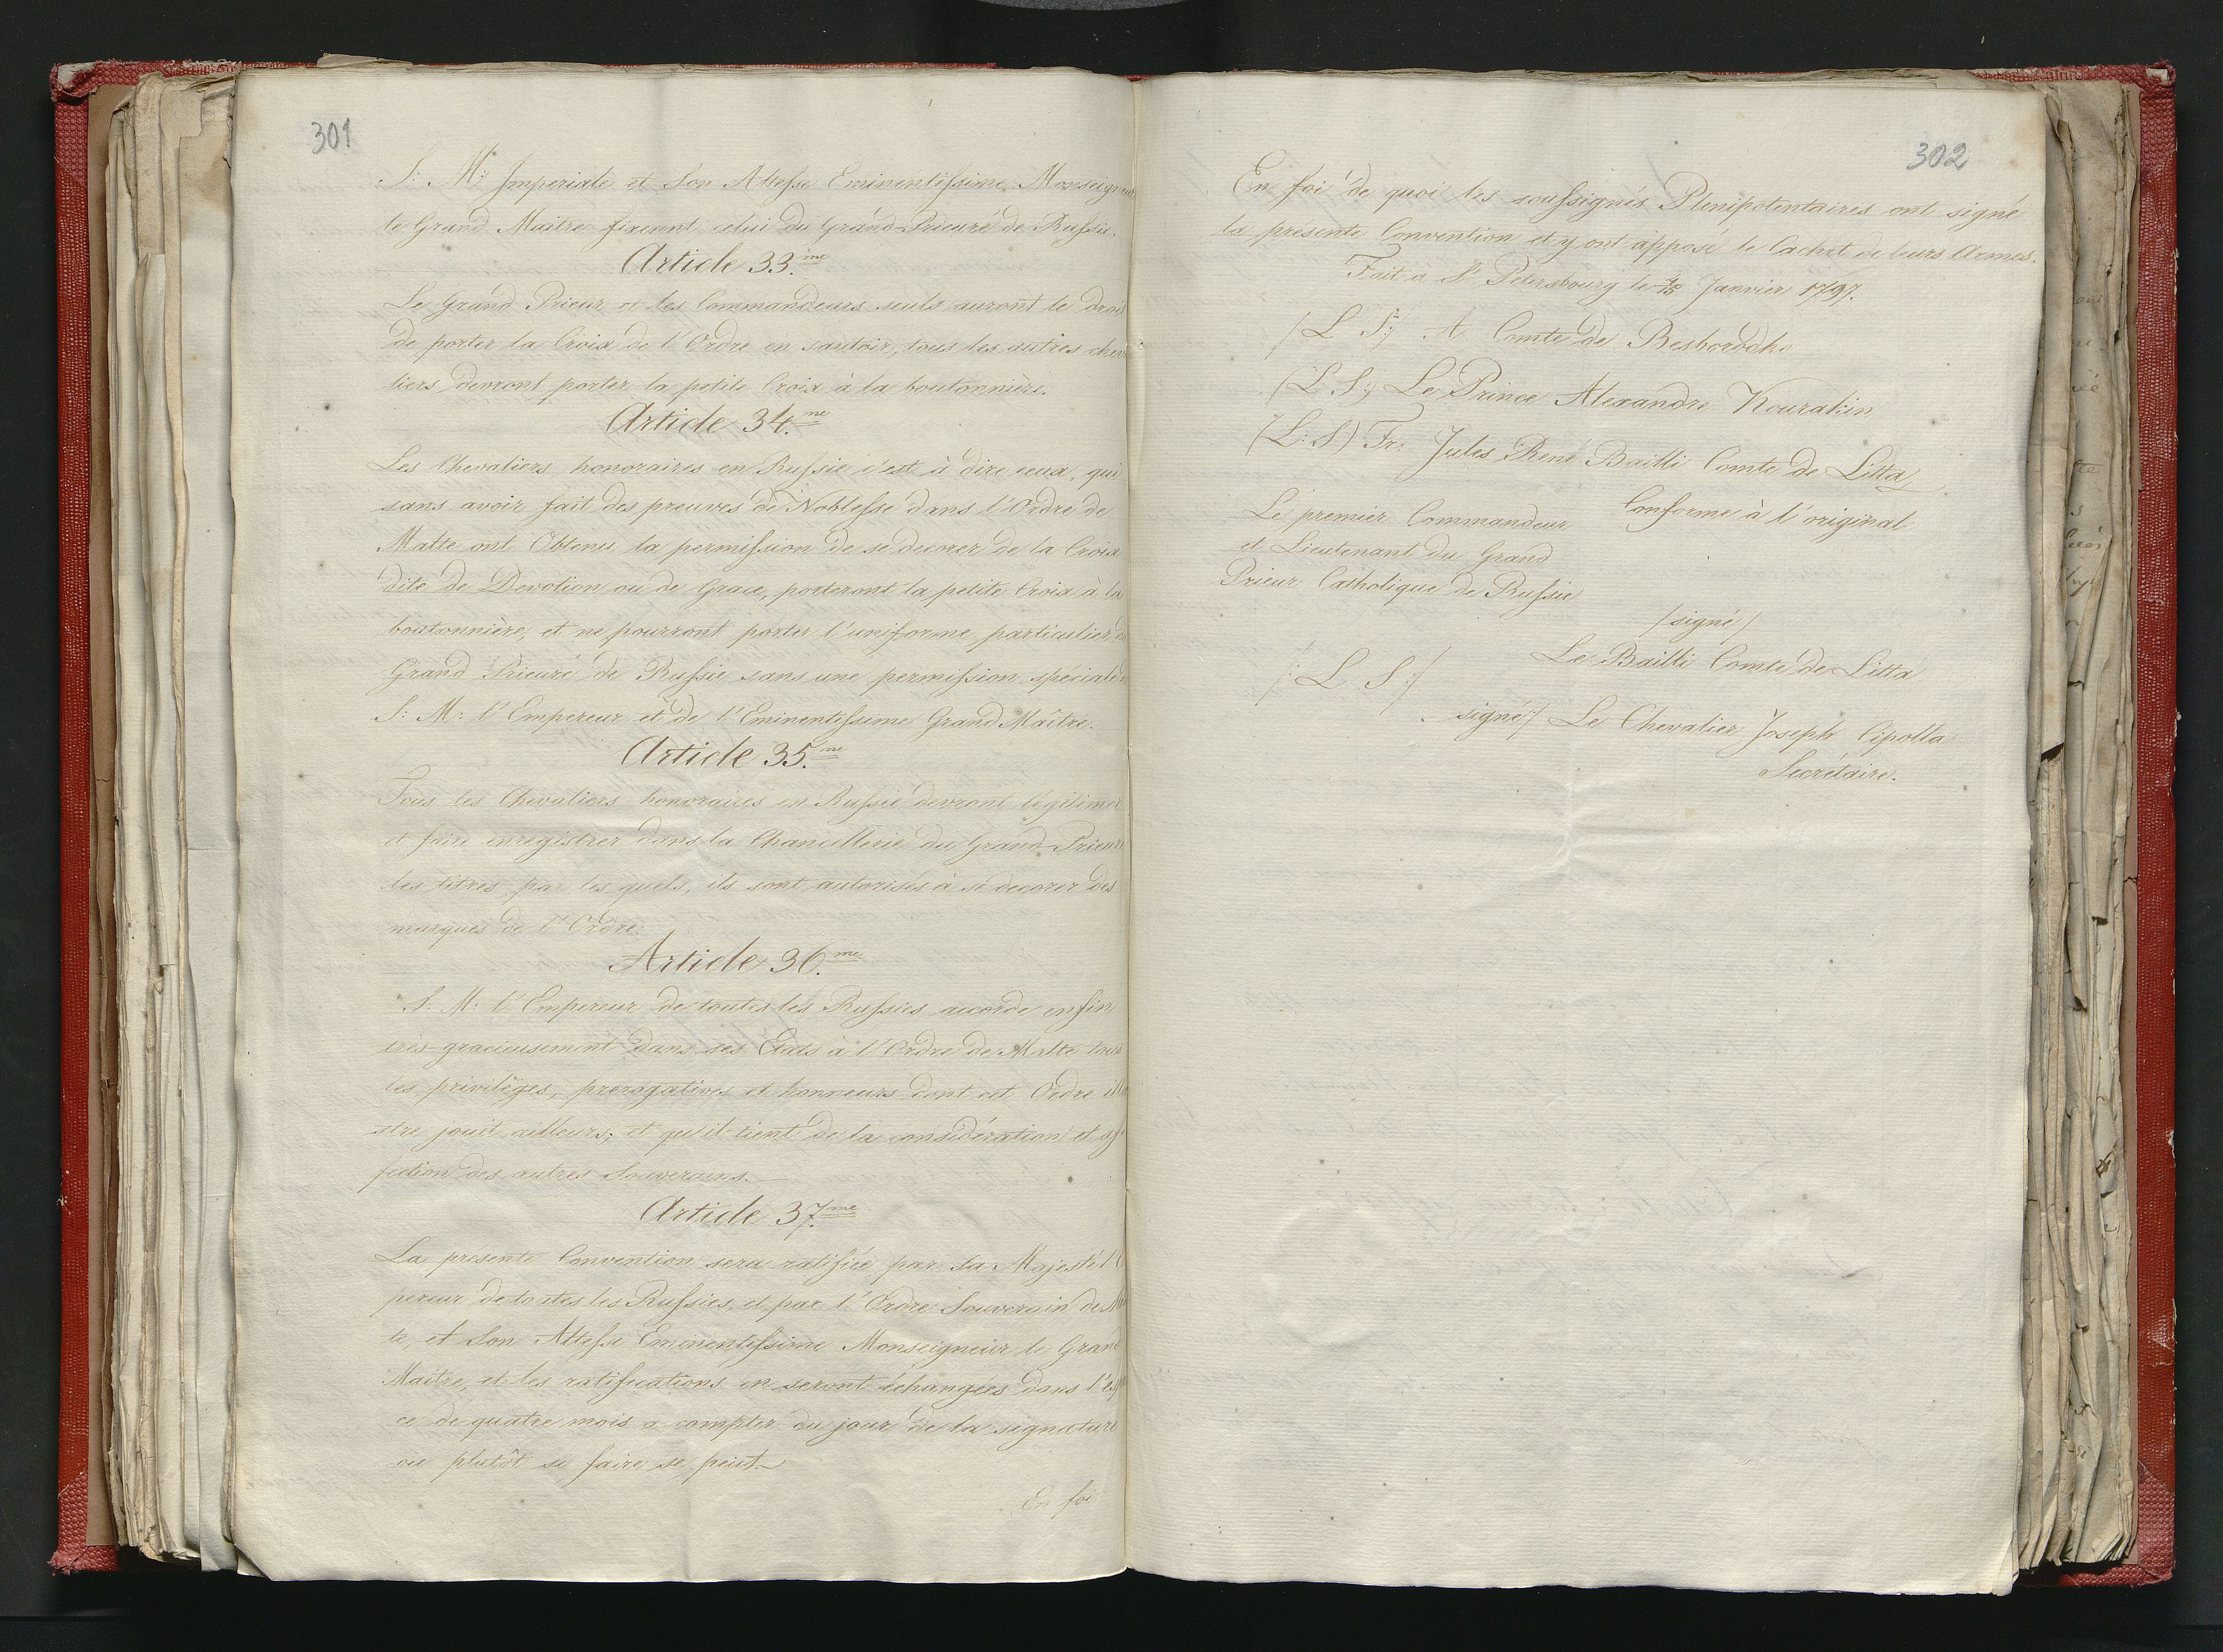 301
S: M: Imperiale et Son Altesse Eminentissime, Monseigneur
le Grand Maitre fixeront celui du Grand-Prieuré de Russie.
Article 33.me
Le Grand Prieur et les Commandeurs seuls auront le droit
de porter la Croix de l'Ordre en sautoir, tous les autres cheva
liers devront porter la petite Croix à la boutonnière.
Article 34.me
Les Chevaliers honoraires en Russie c'est à dire ceux, qui
sans avoir fait des preuves de Noblesse dans l'Ordre de
Malte ont Obtenu la permission de se decorer de la Croix
dite de Devotion ou de Grace, porteront la petite Croix à la
boutonnière, et ne pourront porter l'uniforme particulier
Grand Prieuré de Russie sans une permission spéciale
S: M: l'Empereur et de l'Eminentissime Grand Maître.
Article 35.me
Tous les Chevaliers honoraires en Russie devront légitimer
et faire enregistrer dans la Chancellerie du Grand-Prieuré
les titres par les quels, ils sont autorisés à se decorer des
marques de l'Ordre.
Article 36.me
S. M: l'Empereur de toutes les Russies accorde enfin
très-gracieusement dans ses Etats à l'Ordre de Malte tous
les privilèges, prerogatives et honneurs dont cet Ordre illu
stre jouit ailleurs; et qu'il tient de la considération et af
fection des autres Souverains.
Article 37.me
La presente Convention sera ratifiée par Sa Majesté l'
pereur de toutes les Russies, et par l'Ordre Souverain de Mal
te, et Son Altesse Eminentissime Monseigneur le Grand
Maitre, et les ratifications en seront échangées dans l'espa
ce de quatre mois a compter du jour de la signature
ou plutôt si faire se peut.
En foi
302
En foi de quoi les soussignés Plenipotentaires ont signé
la présente Convention et y ont apposé le Cachet de leurs Armes.
Fait à St Petersbourg le 4/15 Janvier 1797.
/L S:/ A Comte de Besborodko
(L. S:) Le Prince Alexandre Kourakin
(L: S) Fr. Jules René Bailli Comte de Litta
Conforme à l'original.
Le premier Commandeur
et Lieutenant du Grand
Prieur Catholique de Russie
/signé/
Le Bailli Comte de Litta
/: L S :/
signé/ Le Chevalier Joseph Cipolla
Secrétaire.